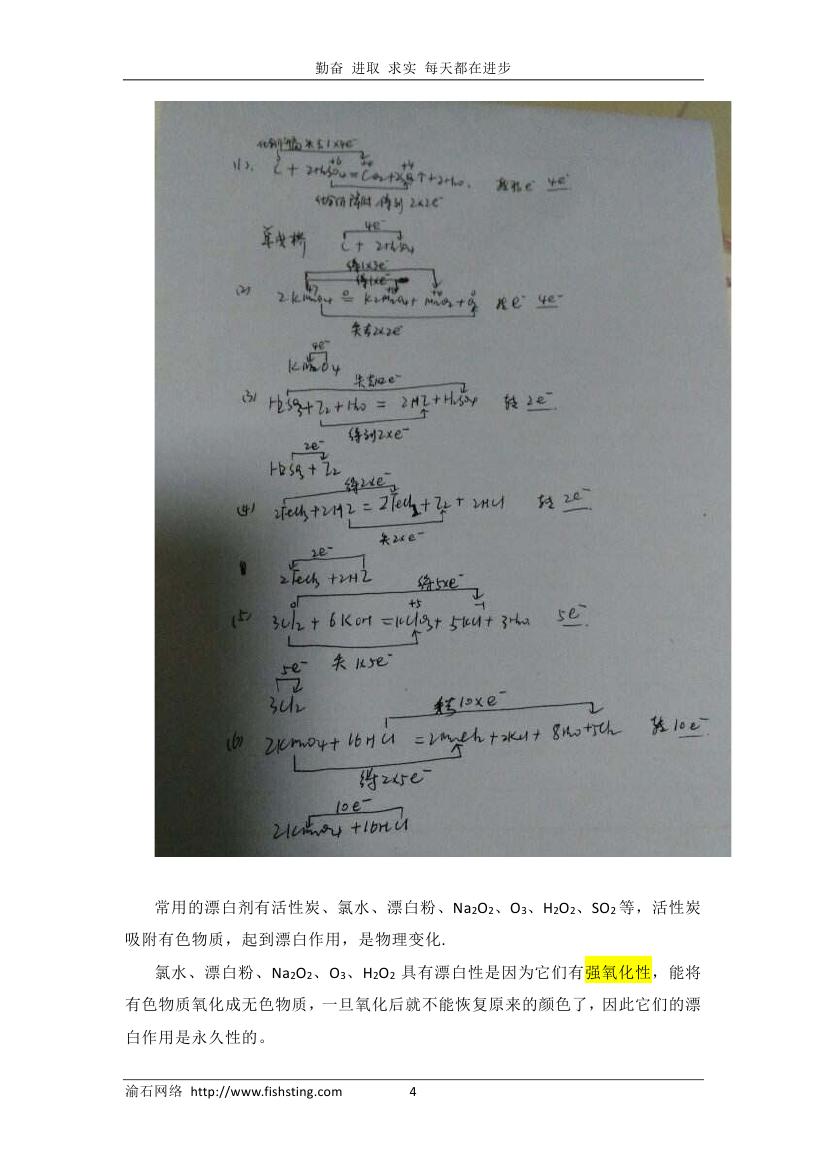 勤奋 进取 求实 每天都在进步
化合价升高 失去1×4e⁻
+6 +4 +4
(1). C + 2H₂SO₄ = CO₂ + 2SO₂↑ + 2H₂O. 转移e⁻ 4e⁻
化合价降低 得到2×2e⁻
单线桥
4e⁻
C + 2H₂SO₄
得1×3e⁻
得1×e⁻
(2) 2KMnO₄ = K₂MnO₄ + MnO₂ + O₂ 转e⁻ 4e⁻
失去2×2e⁻
4e⁻
KMnO₄
(3) H₂SO₃ + I₂ + H₂O = 2HI + H₂SO₄ 转 2e⁻
得到2×e⁻
2e⁻
H₂SO₃ + I₂
得2×e⁻
(4) 2FeCl₃ + 2HI = 2FeCl₂ + I₂ + 2HCl 转 2e⁻
失2×e⁻
2e⁻
2FeCl₃ + 2HI
得5×e⁻
0 +5 -1
(5) 3Cl₂ + 6KOH = KClO₃ + 5KCl + 3H₂O 5e⁻
失 1×5e⁻
5e⁻
3Cl₂
失去10×e⁻
(6) 2KMnO₄ + 16HCl = 2MnCl₂ + 2KCl + 8H₂O + 5Cl₂ 转10e⁻
得2×5e⁻
10e⁻
2KMnO₄ + 16HCl
常用的漂白剂有活性炭、氯水、漂白粉、Na₂O₂、O₃、H₂O₂、SO₂ 等，活性炭
吸附有色物质，起到漂白作用，是物理变化.
氯水、漂白粉、Na₂O₂、O₃、H₂O₂ 具有漂白性是因为它们有强氧化性，能将
有色物质氧化成无色物质，一旦氧化后就不能恢复原来的颜色了，因此它们的漂
白作用是永久性的。
渝石网络 http://www.fishsting.com 4